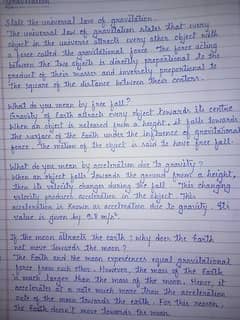 State the universal law of gravitation.
The universal law of gravitation states that every
object in the universe attracts every other object with
a force called the gravitational force. The force acting
between two objects is directly proportional to the
product of their masses and inversely proportional to
the square of the distance between their centers.
What do you mean by free fall?
Gravity of Earth attracts every object towards its centre.
When an object is released from a height, it falls towards
the surface of the Earth under the influence of gravitational
force. The motion of the object is said to have free fall.
What do you mean by acceleration due to gravity?
When an object falls towards the ground from a height,
then its velocity changes during the fall. This changing
velocity produces acceleration in the object. This
acceleration is known as acceleration due to gravity. Its
value is given by 9.8 m/s².
If the moon attracts the earth, why does the Earth
not move towards the moon?
The Earth and the moon experiences equal gravitational
forces from each other. However, the mass of the Earth
is much larger than the mass of the moon. Hence, it
accelerates at a rate much more than the acceleration
rate of the moon towards the Earth. For this reason,
the Earth doesn't move towards the moon.